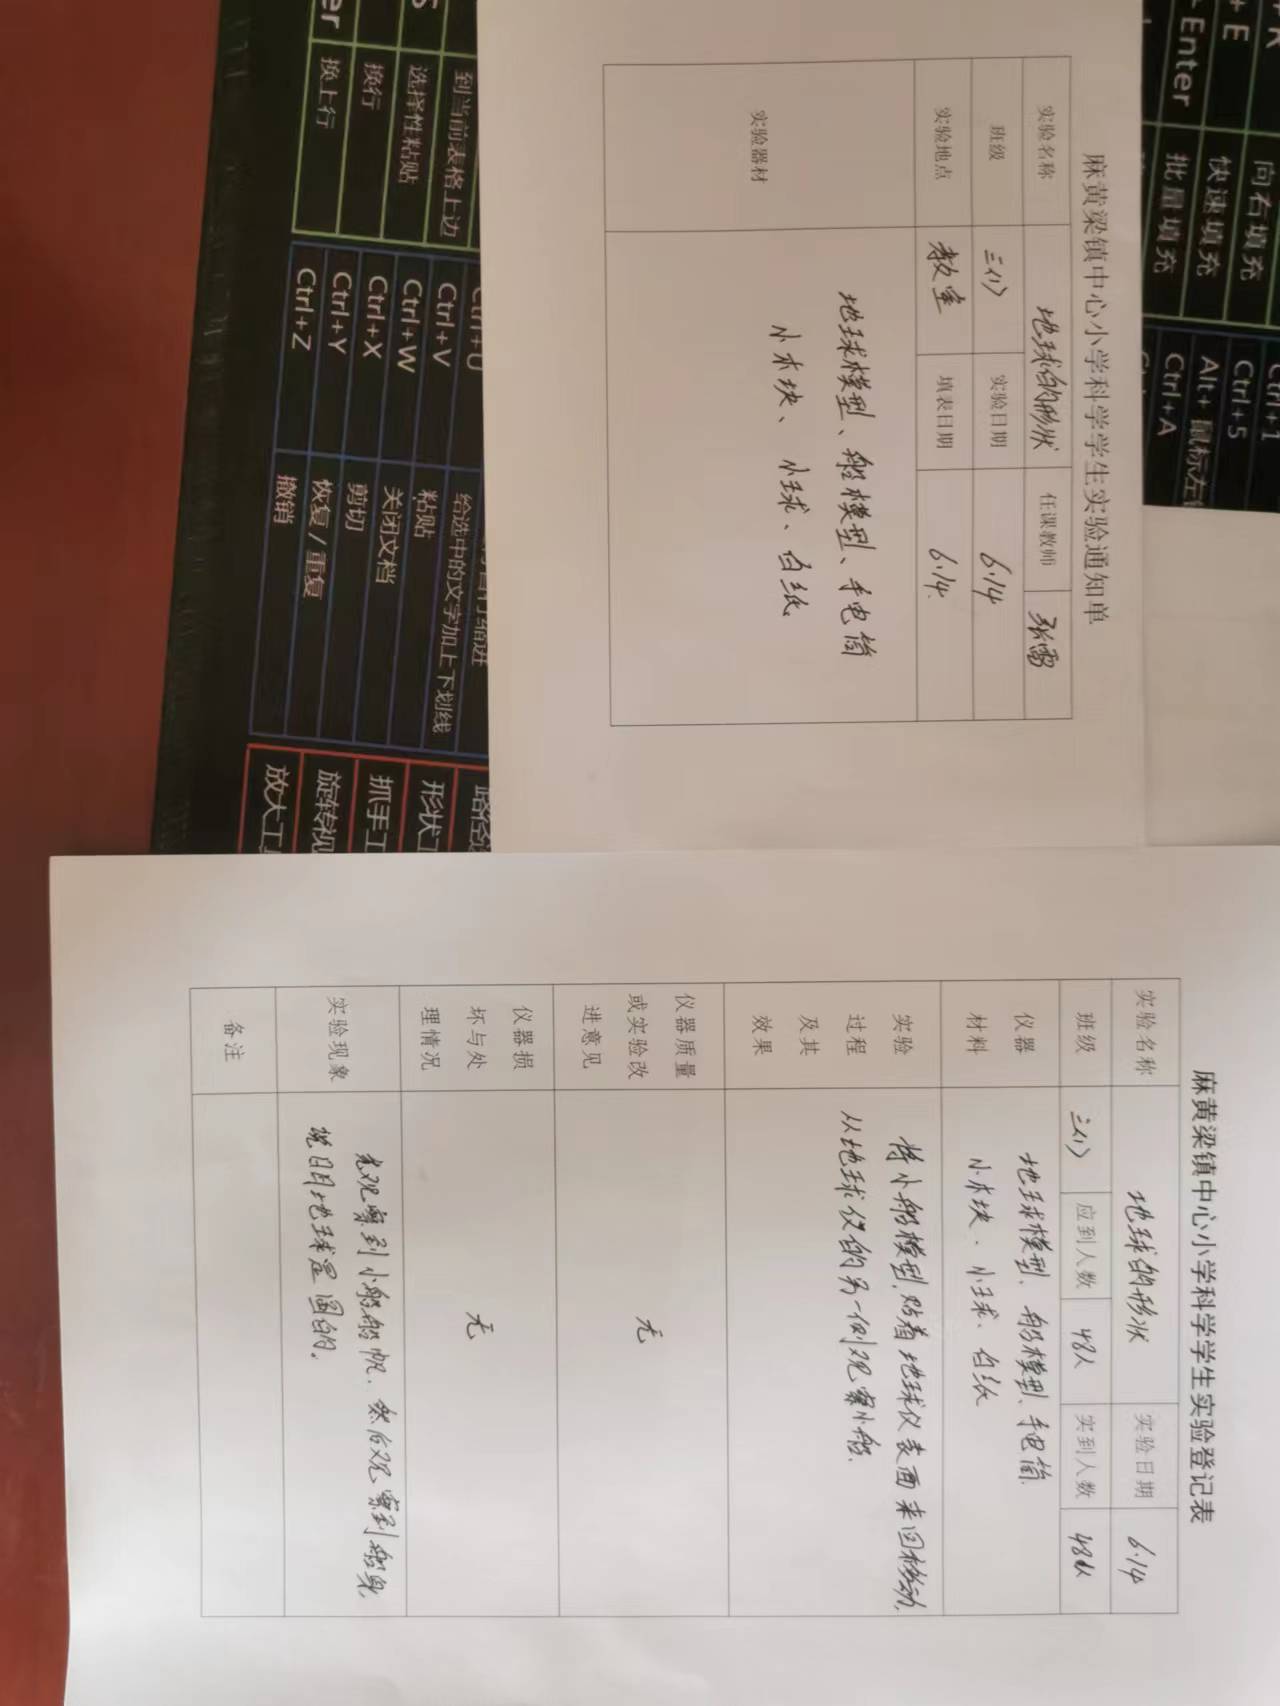 麻黄梁镇中心小学科学学生实验通知单
实验名称 地球的形状 任课教师 张雷
班级 三(1) 实验日期 6.14
实验地点 教室 填表日期 6.14.
实验器材 地球模型、船模型、手电筒
小木块、小球、白纸
麻黄梁镇中心小学科学学生实验登记表
实验名称 地球的形状 实验日期 6.14
班级 三(1) 应到人数 48人 实到人数 48人
仪器
材料
地球模型、船模型、手电筒
小木块、小球、白纸
实验
过程
及其
效果
将小船模型贴着地球仪表面来回移动,
从地球仪的另一侧观察小船.
仪器质量
或实验改
进意见
无
仪器损
坏与处
理情况
无
实验现象
先观察到小船船帆,然后观察到船身,
说明地球是圆的.
备注
向右填充 Ctrl+
快速填充 Ctrl+5
+ E
Enter 批量填充 Alt+鼠标左
Ctrl+A
到当前表格上边
选择性粘贴
换行
换上行
Ctrl+U
Ctrl+V 粘贴
Ctrl+W 关闭文档
Ctrl+X 剪切
Ctrl+Y 恢复/重复
Ctrl+Z 撤销
给选中的文字加上下划线
形状工
抓手工
旋转视
放大工